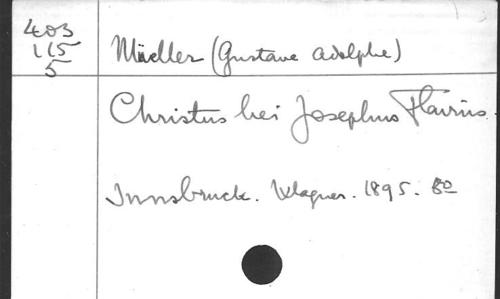 403
115
5
Müller (Gustave Adolphe)
Christus bei Josephus Flavius.
Innsbruck. Wagner. 1895. 8º